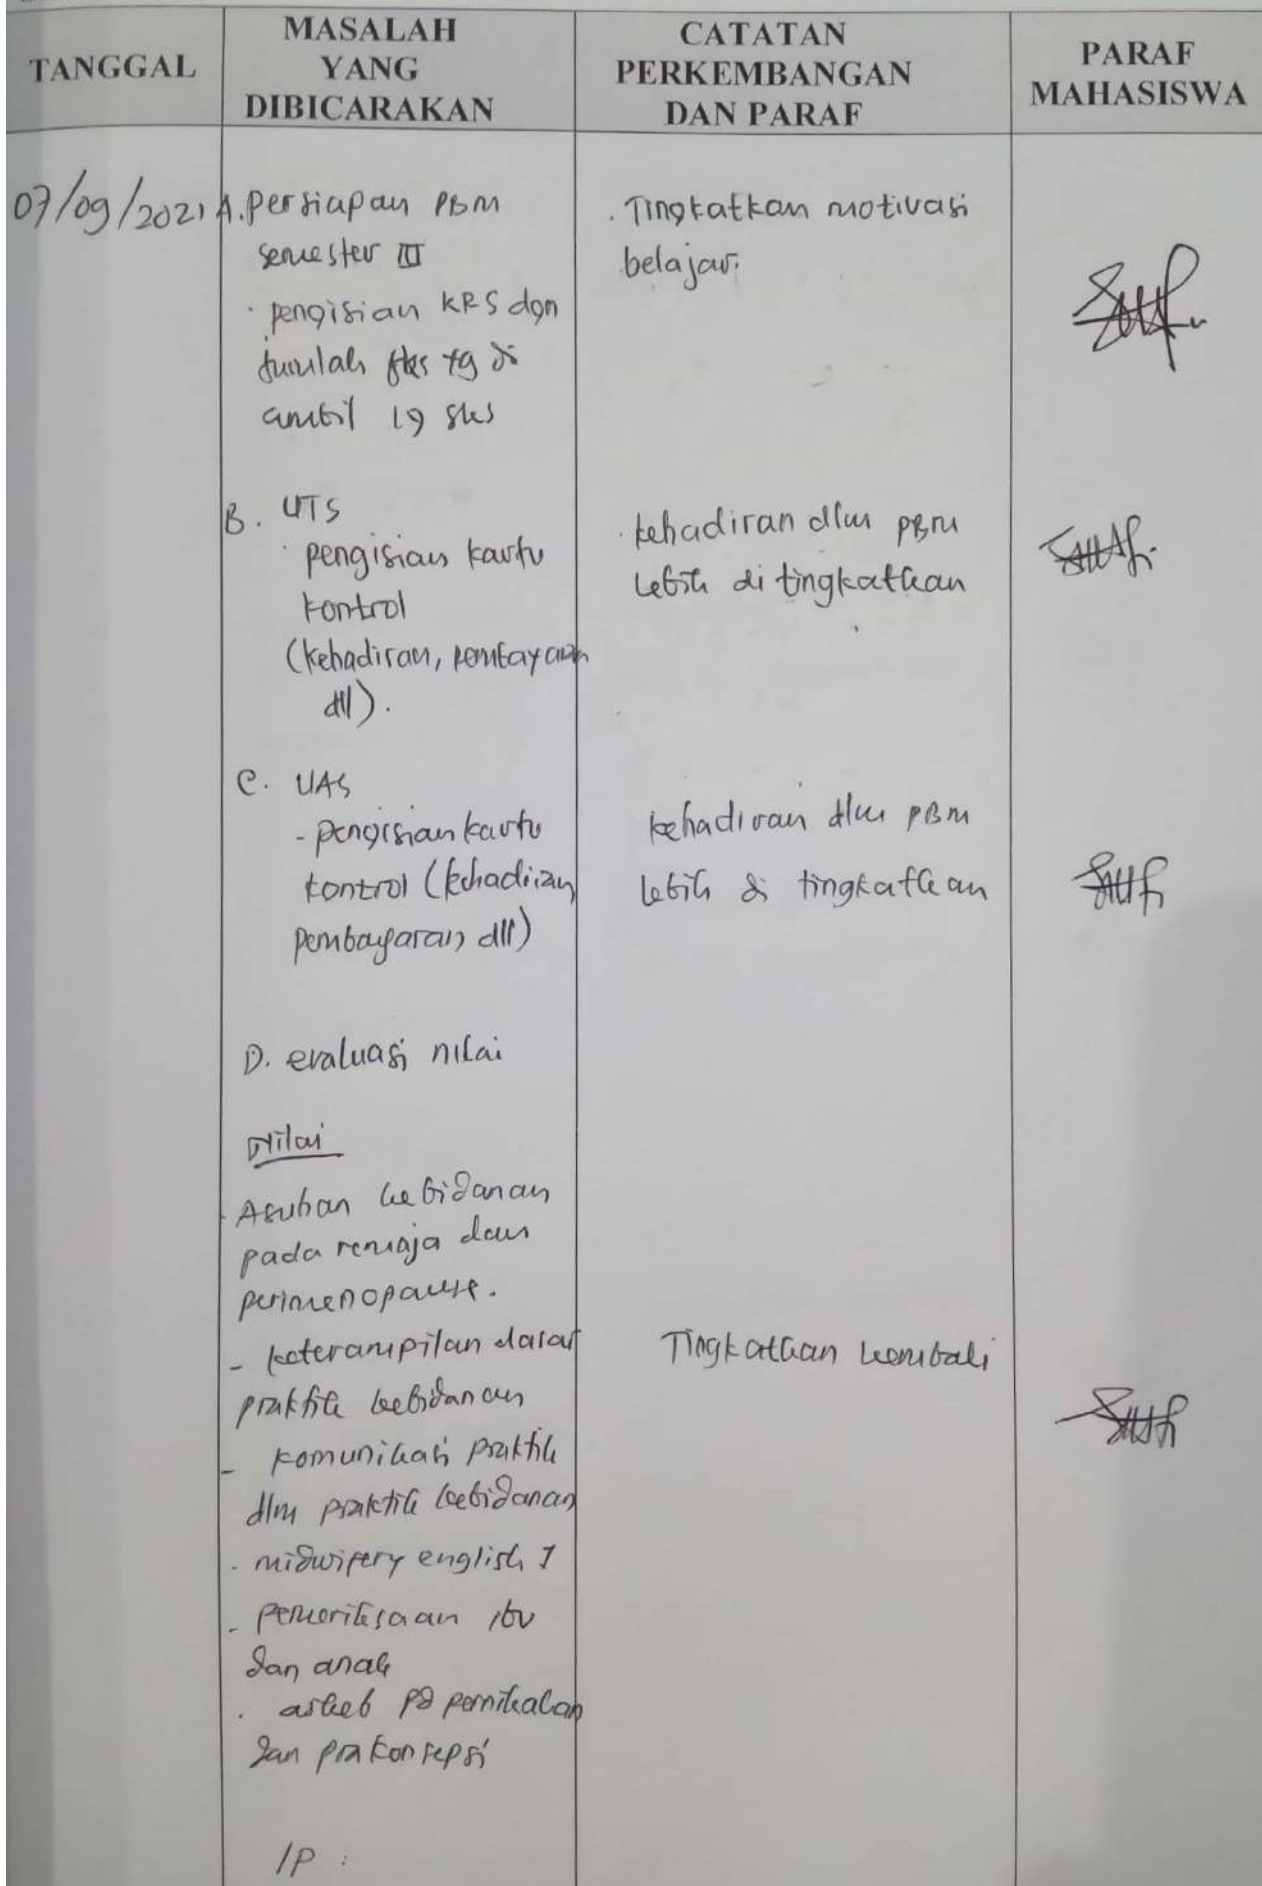 TANGGAL
MASALAH
YANG
DIBICARAKAN
CATATAN
PERKEMBANGAN
DAN PARAF
PARAF
MAHASISWA
07/09/2021
A. persiapan PBM
semester III
· pengisian KRS dgn
jumlah sks yg di
ambil 19 sks
. Tingkatkan motivasi
belajar.
B. UTS
· pengisian kartu
kontrol
(kehadiran, pembayaran
dll).
· kehadiran dlm PBM
lebih di tingkatkan
C. UAS
- pengisian kartu
kontrol (kehadiran,
pembayaran, dll)
kehadiran dlm PBM
lebih di tingkatkan
D. evaluasi nilai
Nilai
- Asuhan kebidanan
pada remaja dan
perimenopause.
- keterampilan dasar
praktik kebidanan
- komunikasi praktik
dlm praktik kebidanan
- midwifery english I
- pemeriksaan ibu
dan anak
. askeb pd pernikahan
dan prakonsepsi
Tingkatkan kembali
IP :